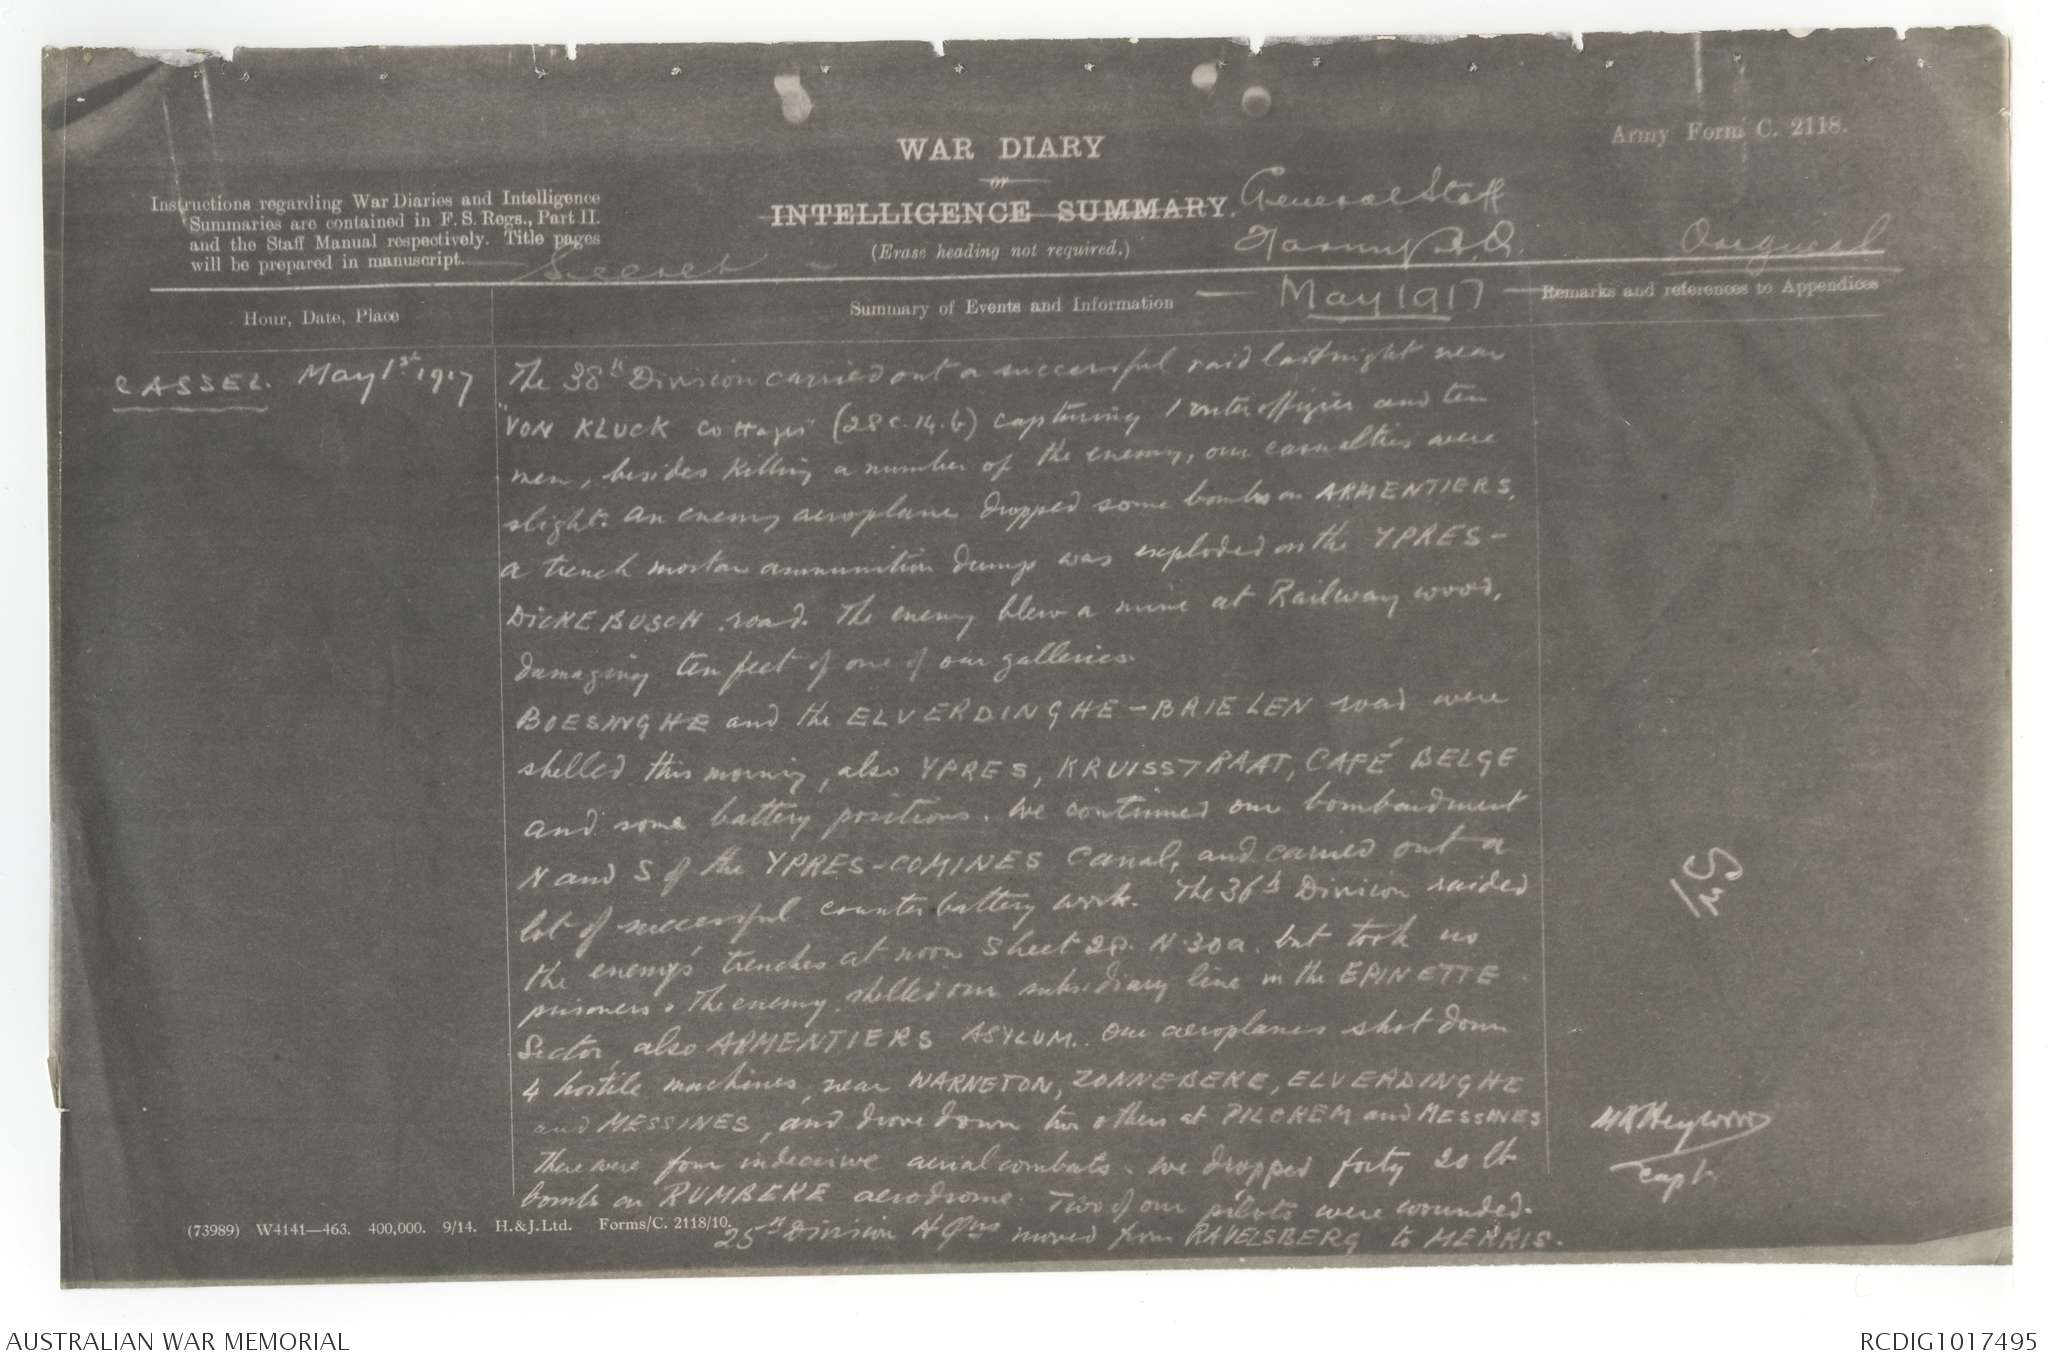 Army Form C. 2118.
WAR DIARY
or
INTELLIGENCE SUMMARY.
(Erase heading not required.)
General Staff
Army H.Q.
Original
Instructions regarding War Diaries and Intelligence
Summaries are contained in F. S. Regs., Part II.
and the Staff Manual respectively. Title pages
will be prepared in manuscript.
Secret
May 1917
Hour, Date, Place
Summary of Events and Information
Remarks and references to Appendices
CASSEL. May 1st 1917
The 38th Division carried out a successful raid last night near
"VON KLUCK Cottages" (28 C.14.b) capturing 1 unteroffizier and ten
men, besides killing a number of the enemy, our casualties were
slight. An enemy aeroplane dropped some bombs on ARMENTIERS,
a trench mortar ammunition dump was exploded on the YPRES-
DICKEBUSCH road. The enemy blew a mine at Railway wood,
damaging ten feet of one of our galleries.
BOESINGHE and the ELVERDINGHE-BRIELEN road were
shelled this morning, also YPRES, KRUISSTRAAT, CAFÉ BELGE
and some battery positions. We continued our bombardment
N and S of the YPRES-COMINES Canal, and carried out a
lot of successful counter battery work. The 36th Division raided
the enemy's trenches at noon Sheet 28. N.30a. but took no
prisoners. The enemy shelled our subsidiary line in the EPINETTE
Sector, also ARMENTIERS ASYLUM. Our aeroplanes shot down
4 hostile machines, near WARNETON, ZONNEBEKE, ELVERDINGHE
and MESSINES, and drove down two others at PILCKEM and MESSINES
There were four indecisive aerial combats. We dropped forty 20 lb
bombs on RUMBEKE aerodrome. Two of our pilots were wounded.
25th Division HQrs moved from RAVELSBERG to MERRIS.
Heywood
Capt
(73989) W4141—463. 400,000. 9/14. H.&J.Ltd. Forms/C. 2118/10.
AUSTRALIAN WAR MEMORIAL
RCDIG1017495